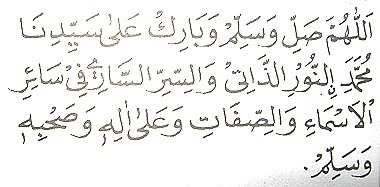 اَللّٰهُمَّ صَلِّ وَسَلِّمْ وَبَارِكْ عَلٰى سَيِّدِنَا
مُحَمَّدٍ اِلنُّوْرِ الذَّاتِىْ وَالسِّرِّ السَّارِىْ فِىْ سَائِرِ
الْاَسْمَاءِ وَالصِّفَاتِ وَعَلٰى اٰلِهٖ وَصَحْبِهٖ
وَسَلِّمْ.